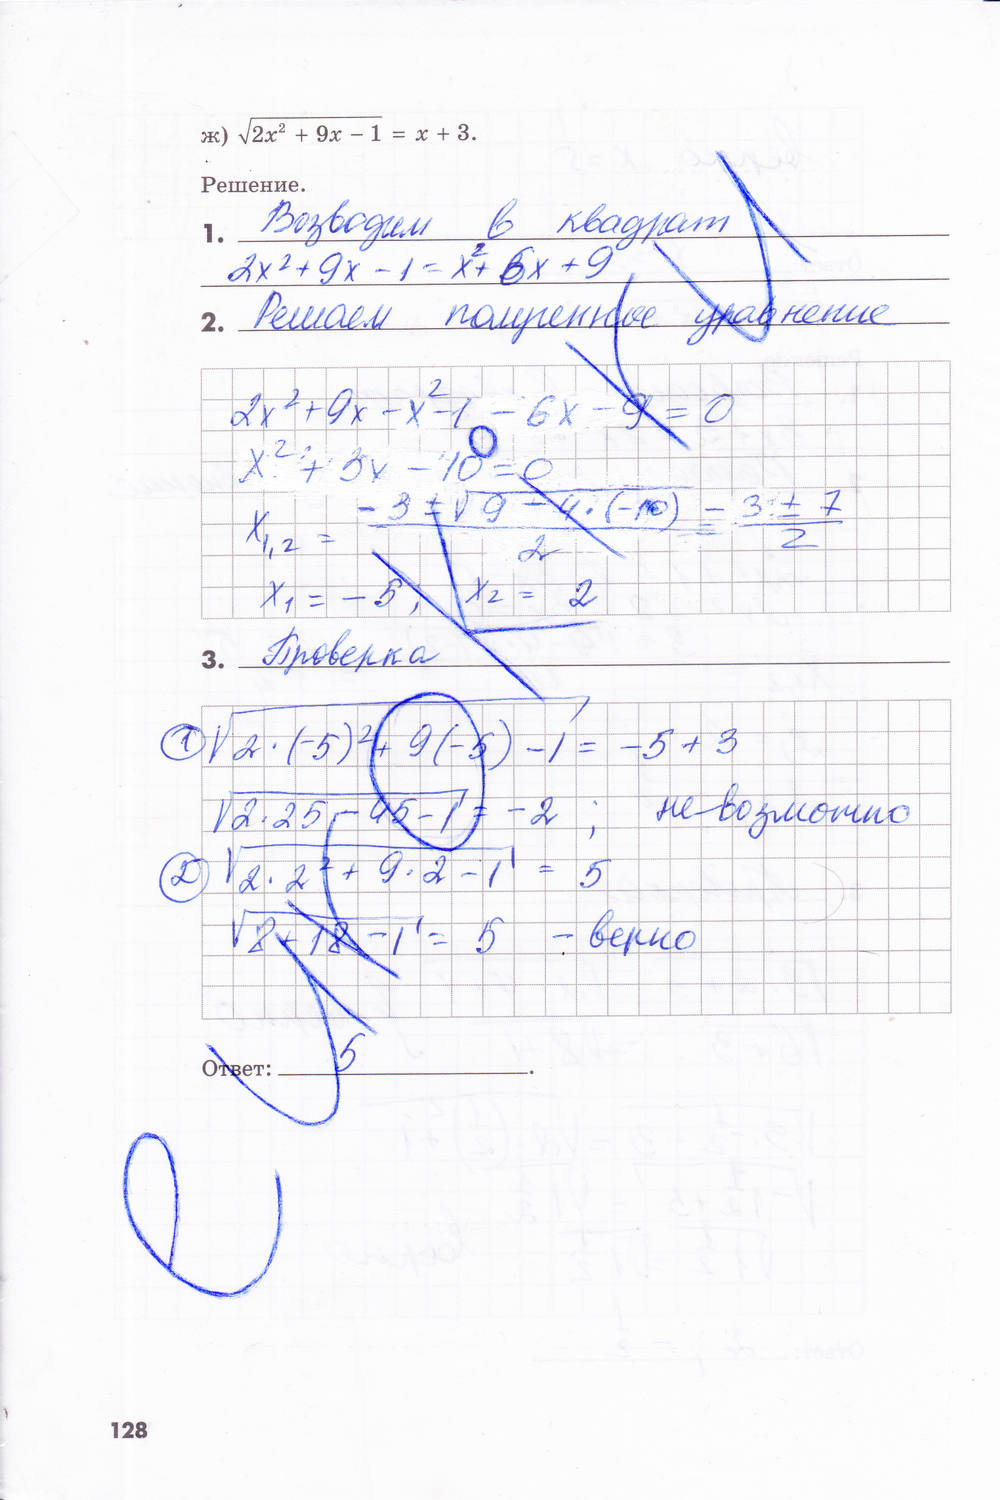 ж) √2x² + 9x − 1 = x + 3.
Решение.
1. Возводим в квадрат
2x² + 9x − 1 = x² + 6x + 9
2. Решаем полученное уравнение
2x² + 9x − x² − 1 − 6x − 9 = 0
x² + 3x − 10 = 0
x1,2 = −3 ± √9 − 4 · (−10) / 2 = −3 ± 7 / 2
x1 = −5 ; x2 = 2
3. Проверка
① √2 · (−5)² + 9(−5) − 1 = −5 + 3
√2 · 25 − 45 − 1 = −2 ; невозможно
② √2 · 2² + 9 · 2 − 1 = 5
√8 + 18 − 1 = 5 − верно
Ответ: 5.
128